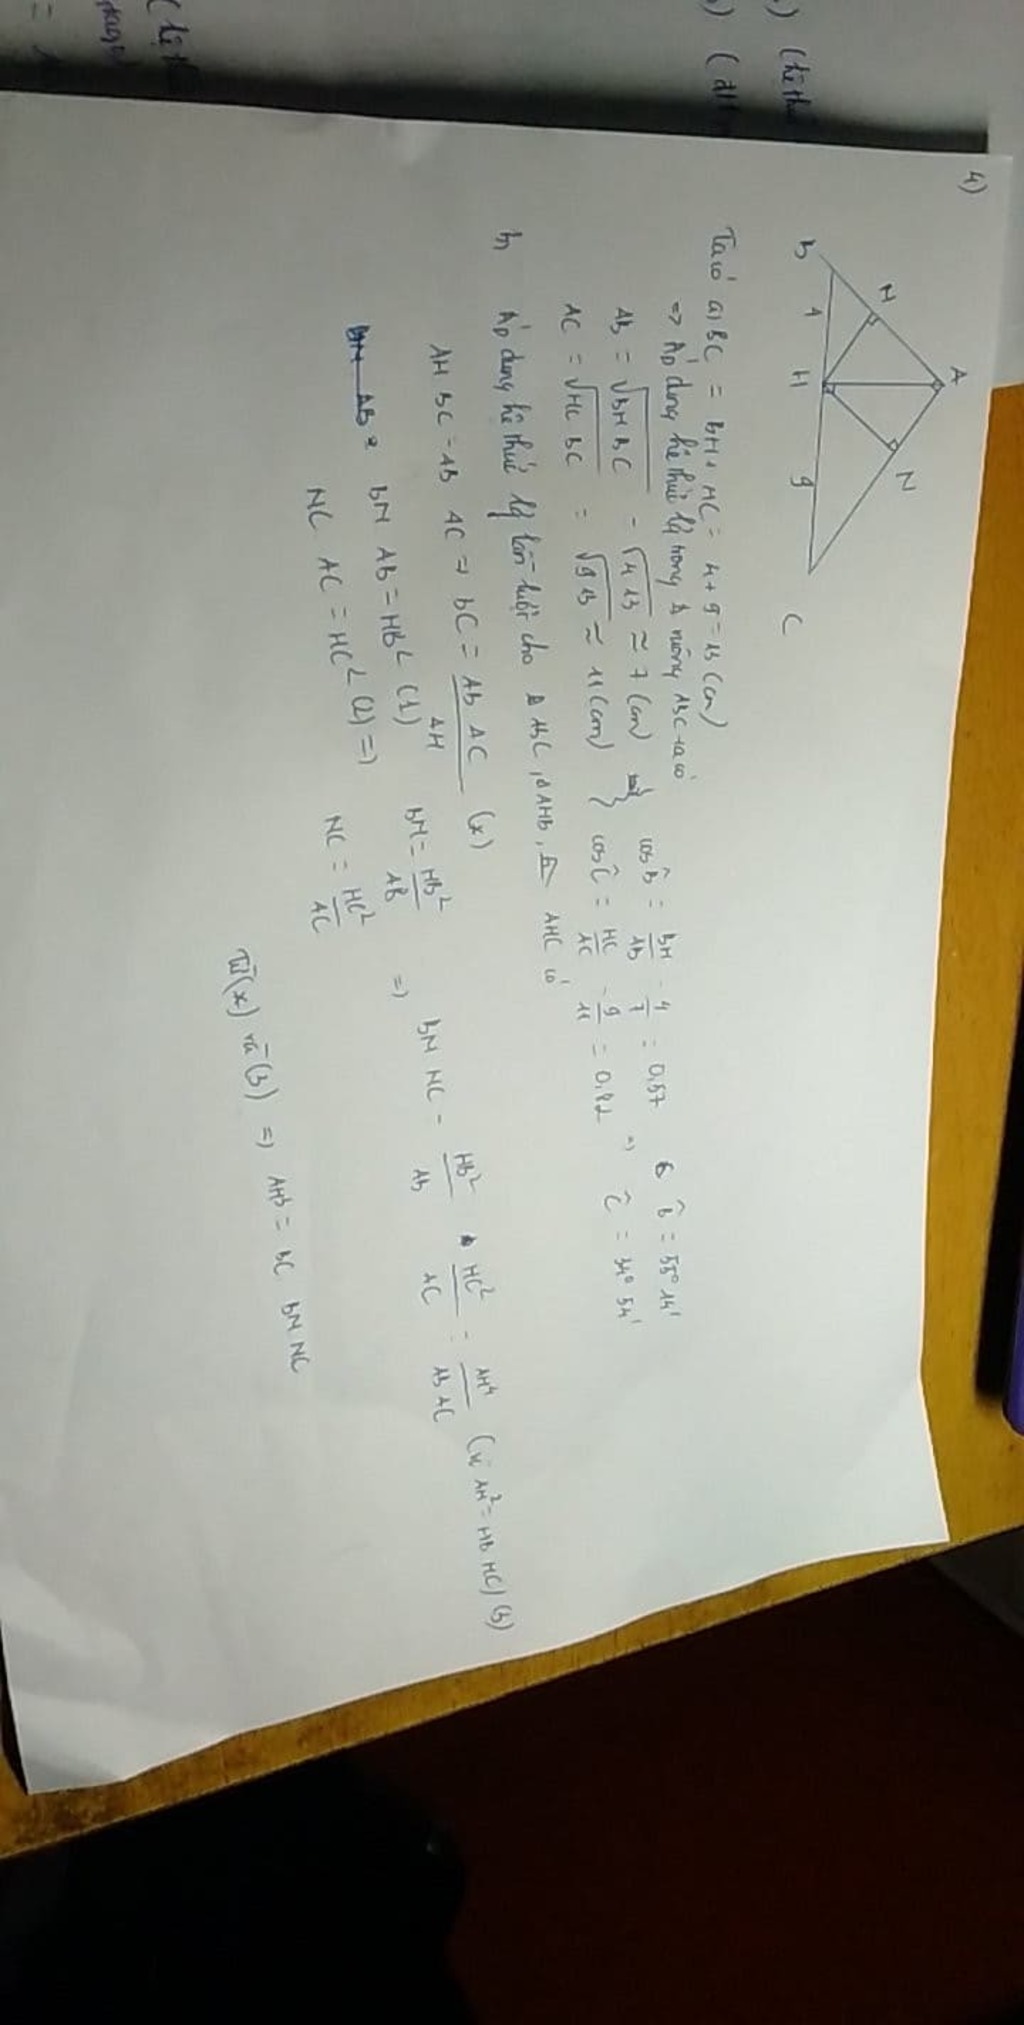 4)
A
M
N
B 4 H 9 C
Ta có a) BC = BH + HC = 4 + 9 = 13 (cm)
=> Áp dụng hệ thức lg trong Δ vuông ABC ta có
AB = √BH BC = √4 13 ≈ 7 (cm)
cos B̂ = BH/AB = 4/7 = 0,57 B̂ = 55° 14'
AC = √HC BC = √9 13 ≈ 11 (cm)
cos Ĉ = HC/AC = 9/11 = 0,82 => Ĉ = 34° 54'
b) Áp dụng hệ thức lg lần lượt cho Δ ABC, Δ AHB, AHC có
AH BC = AB AC => BC = AB AC/AH (*)
BM AB = HB² (1)
NC AC = HC² (2) =>
BM = HB²/AB
NC = HC²/AC
=> BM NC = HB²/AB . HC²/AC = AH⁴/AB AC (vì AH² = HB HC) (3)
Từ (*) và (3) => AH³ = BC BM NC
(hệ thứ